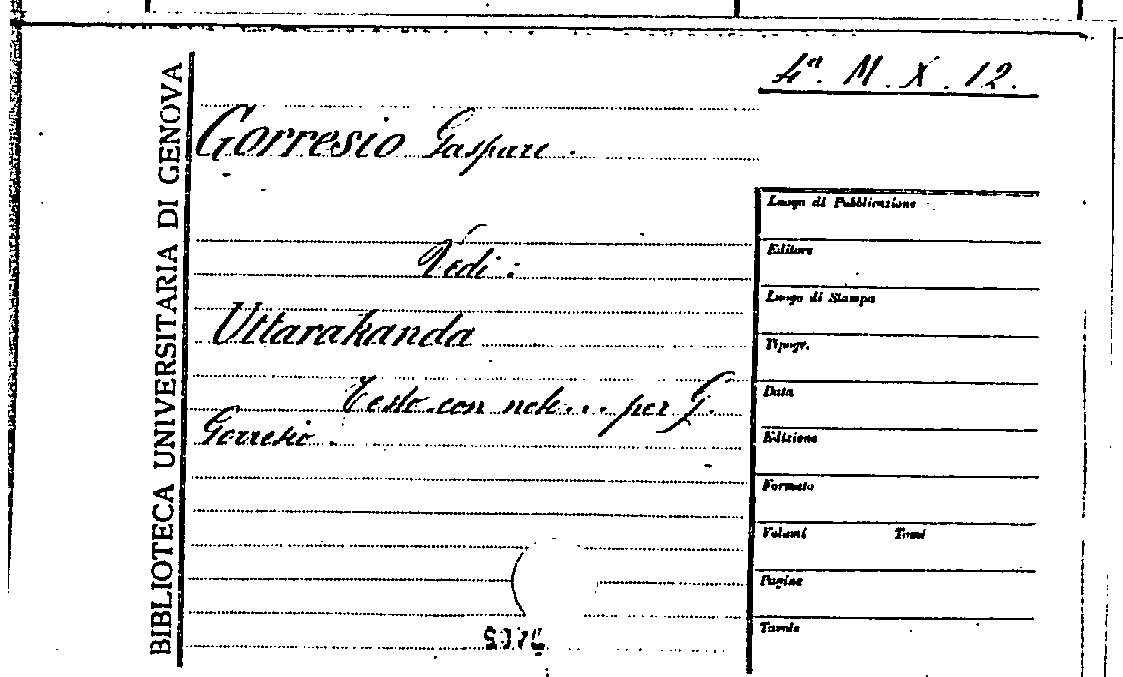 4ª. M. X. 12.
BIBLIOTECA UNIVERSITARIA DI GENOVA
Gorresio Gaspare.
Vedi:
Uttarakanda
Testo con note... per G.
Gorresio.
Luogo di Pubblicazione
Editore
Luogo di Stampa
Tipogr.
Data
Edizione
Formato
Volumi Tomi
Pagine
Tavole